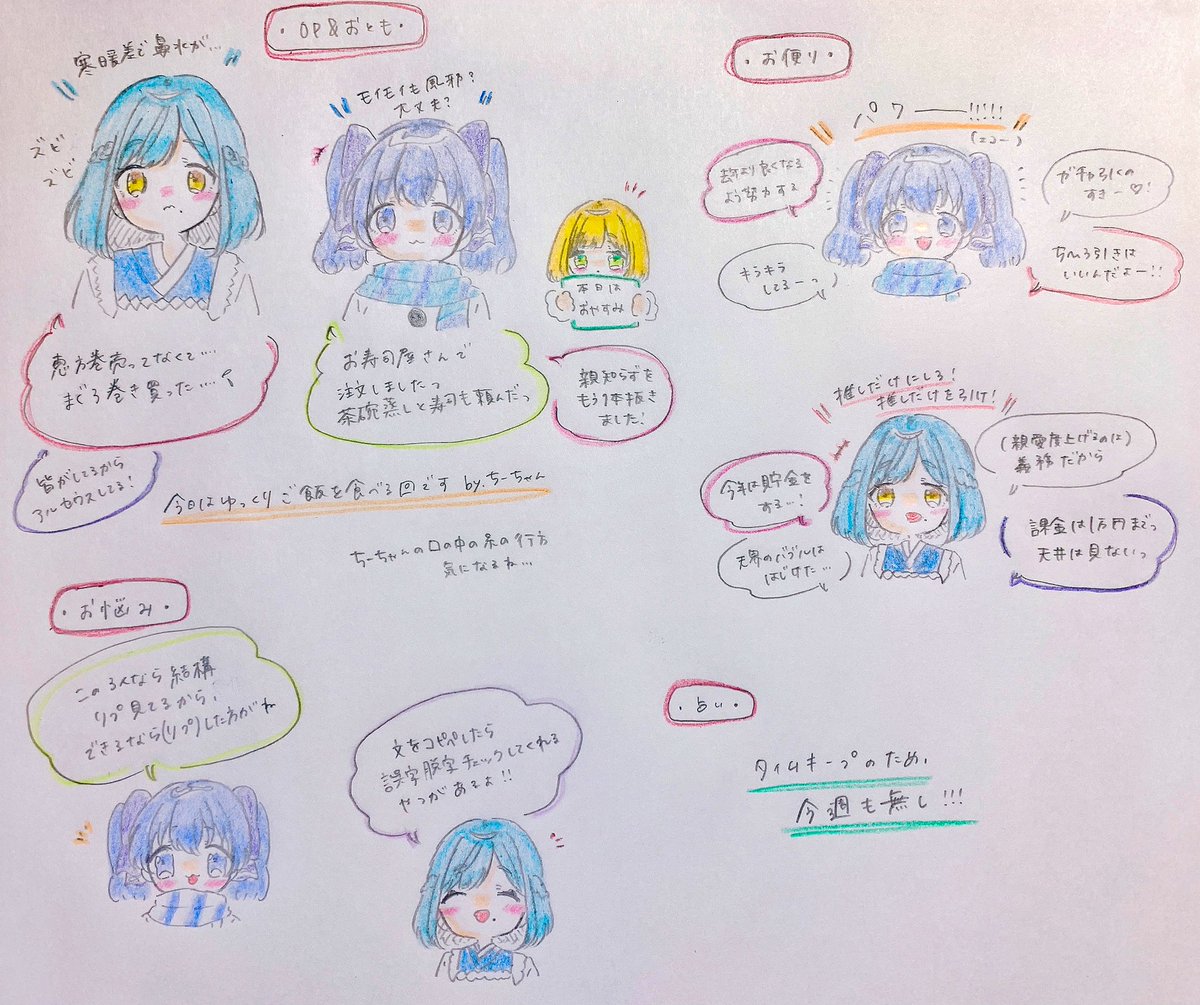 ・OP&おとも・
寒暖差で鼻水が…
ズビ
ズビ
モイモイも風邪?
大丈夫?
本日は
おやすみ
恵方巻売ってなくて…
まぐろ巻き買った…
お寿司屋さんで
注文しましたっ
茶碗蒸しと寿司も頼んだっ
親知らずを
もう1本抜き
ました!
皆がしてるから
アルカウスしてる!
今日はゆっくりご飯を食べる回です by.ちーちゃん
ちーちゃんの口の中の糸の行方
気になるね…
・お便り・
パワー!!!!!
(エコー)
去年より良くなる
よう努力する
ガチャ引くの
すきー♡!
キラキラ
してるーっ
ちょろ引きは
いいんだよー!!
推しだけにしろ!
推しだけを引け!
(親愛度上げるのは)
義務だから
今年は貯金を
する…!
課金は1万円までっ
天井は見ないっ
天界のバブルは
はじけた…
・お悩み・
この3人なら結構
リプ見てるから!
できるなら(リプ)した方がね
文をコピペしたら
誤字脱字チェックしてくれる
やつがあるよ!!
・占い・
タイムキープのため、
今週も無し!!!